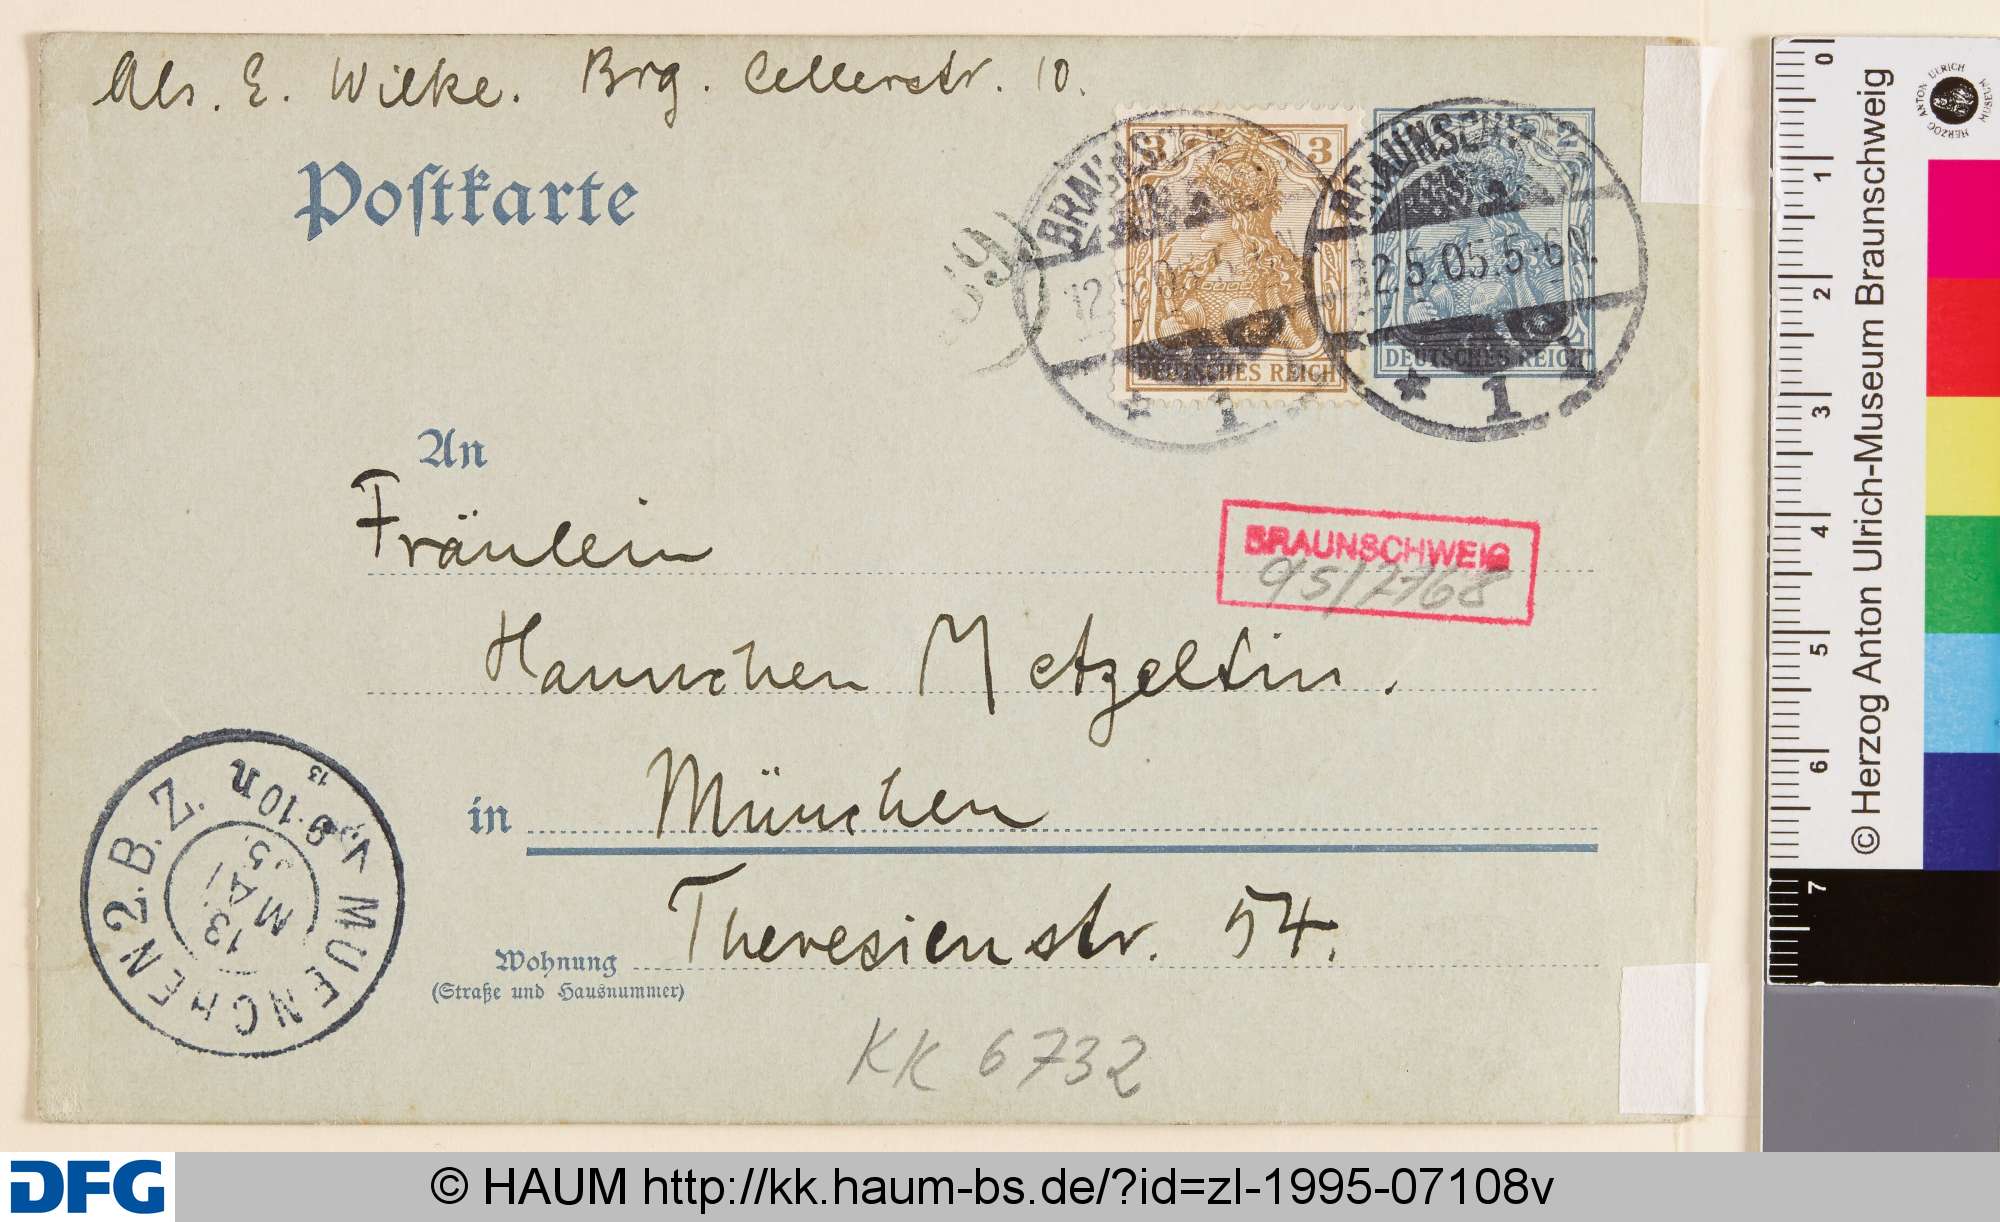 Abs. E. Wilke. Brg. Cellerstr. 10.
Postkarte
3 3
DEUTSCHES REICH
2
DEUTSCHES REICH
BRAUNSCHW
12.5.05.
* 1
BRAUNSCHW
12.5.05.5-6N.
* 1
89
An
Fräulein
BRAUNSCHWEIG
95/7768
Hannchen Metzeltin.
in München
Theresienstr. 54.
Wohnung
(Straße und Hausnummer)
MUENCHEN 2.B.Z.
V. 9-10 n
13
13
MAI
05
KK 6732
0 1 2 3 4 5 6 7
© Herzog Anton Ulrich-Museum Braunschweig
HERZOG ANTON ULRICH MUSEUM
DFG
© HAUM http://kk.haum-bs.de/?id=zl-1995-07108v